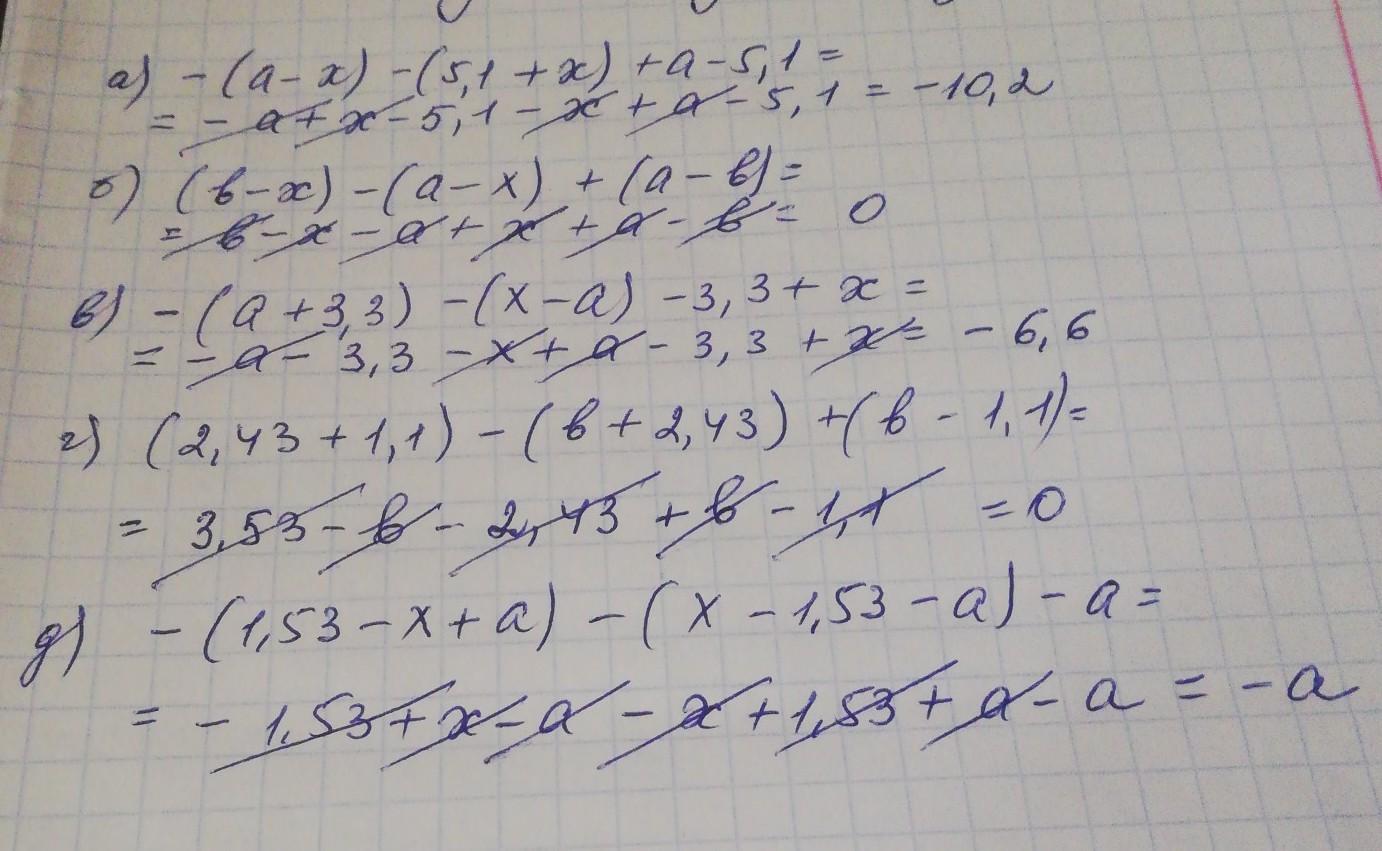 а) -(a-x)-(5,1+x)+a-5,1=
=-a+x-5,1-x+a-5,1=-10,2
б) (в-x)-(a-x)+(a-в)=
=в-x-a+x+a-в=0
в) -(a+3,3)-(x-a)-3,3+x=
=-a-3,3-x+a-3,3+x=-6,6
г) (2,43+1,1)-(в+2,43)+(в-1,1)=
=3,53-в-2,43+в-1,1=0
д) -(1,53-x+a)-(x-1,53-a)-a=
=-1,53+x-a-x+1,53+a-a=-a